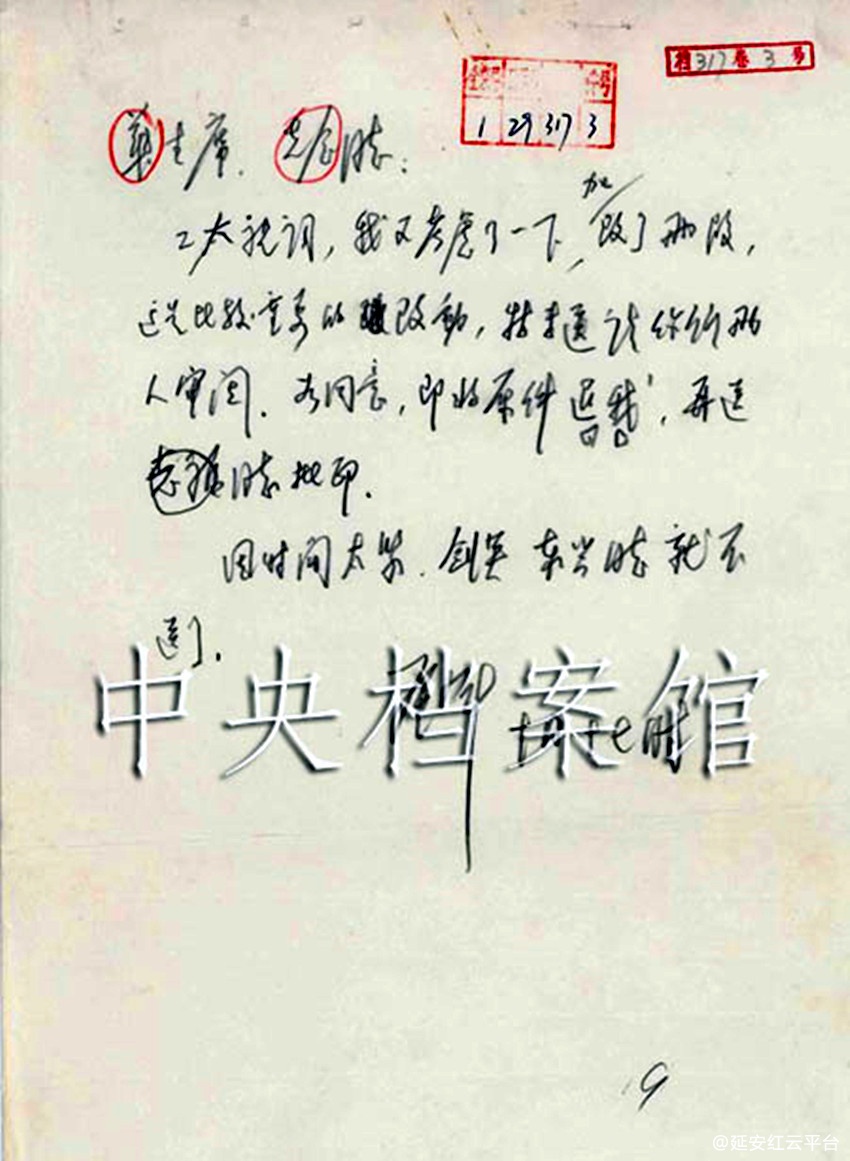 档317卷3号
1 29 317 3
華主席、先念同志:
工大祝词,我又考虑了一下,加改了两段,
这是比较重要的改動,特送请你们两
人审阅。如同意,即将原件退我,再送
志福同志批印。
因时间太紧,剑英 东兴同志就不
送了。
中央档案馆
9
@延安红云平台